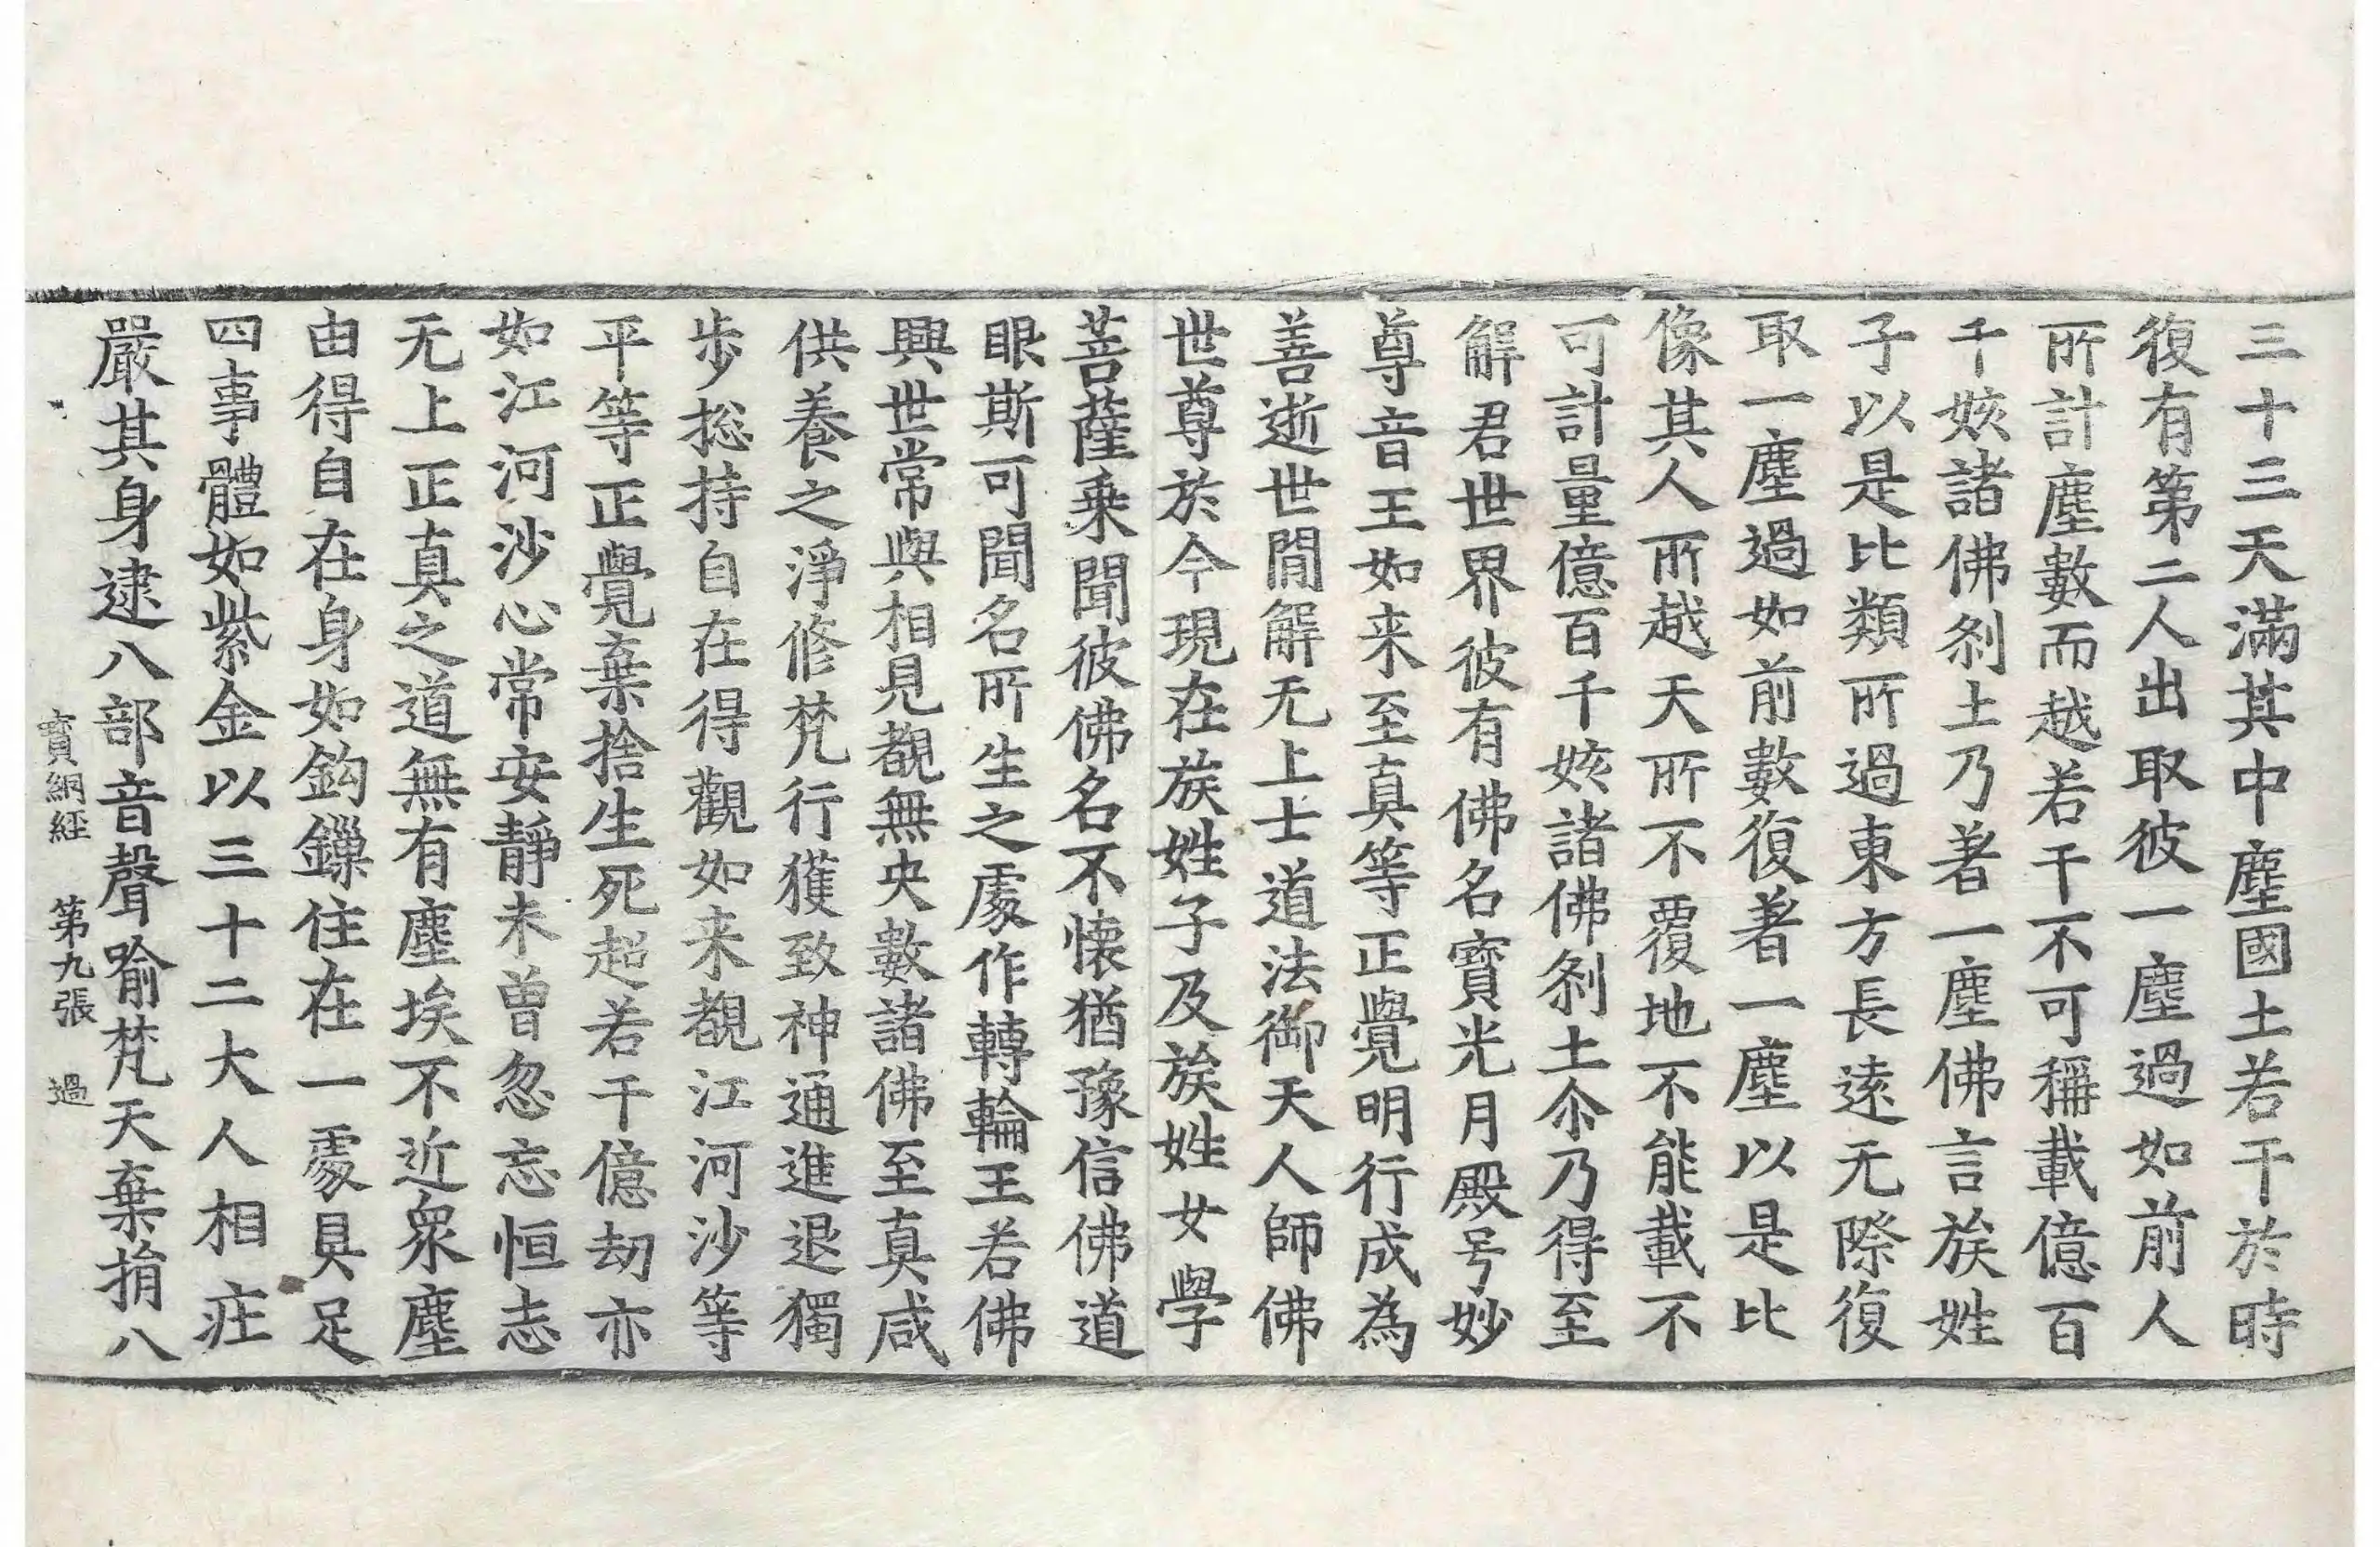 三十三天滿其中塵國土若干於時
復有第二人出取彼一塵過如前人
所計塵數而越若干不可稱載億百
千姟諸佛刹土乃著一塵佛言族姓
子以是比類所過東方長遠无際復
取一塵過如前數復著一塵以是比
像其人所越天所不覆地不能載不
可計量億百千姟諸佛刹土尒乃得至
解君世界彼有佛名寶光月殿号妙
尊音王如来至真等正覺明行成為
善逝世閒解无上士道法御天人師佛
世尊於今現在族姓子及族姓女學
菩薩乗聞彼佛名不懷猶豫信佛道
眼斯可聞名所生之處作轉輪王若佛
興世常與相見覩無央數諸佛至真咸
供養之淨修梵行獲致神通進退獨
步揔持自在得觀如来覩江河沙等
平等正覺棄捨生死超若干億劫亦
如江河沙心常安靜未曽忽忘恒志
无上正真之道無有塵埃不近衆塵
由得自在身如鈎鏁住在一處具足
四事體如紫金以三十二大人相庄
嚴其身逮八部音聲喻梵天棄捐八
寶網經 第九張 過